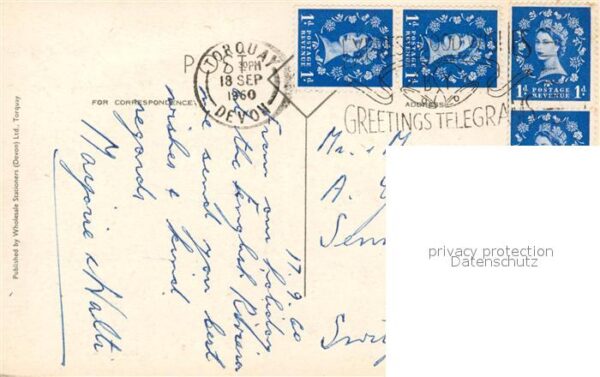 1D
POSTAGE
REVENUE
1D
1D
POSTAGE
REVENUE
1D
1D
POSTAGE
REVENUE
1D
POST
TORQUAY
18 SEP
1960
DEVON
GREETINGS TELEGRA
FOR CORRESPONDENCE
ADDRESS
17.9.60
From our holiday
on the English Riviera
we send you best
wishes & kind
regards
Marjorie & Walti
Mr. & M
A.
Senn
Swi
Published by Wholesale Stationers (Devon) Ltd., Torquay
privacy protection
Datenschutz